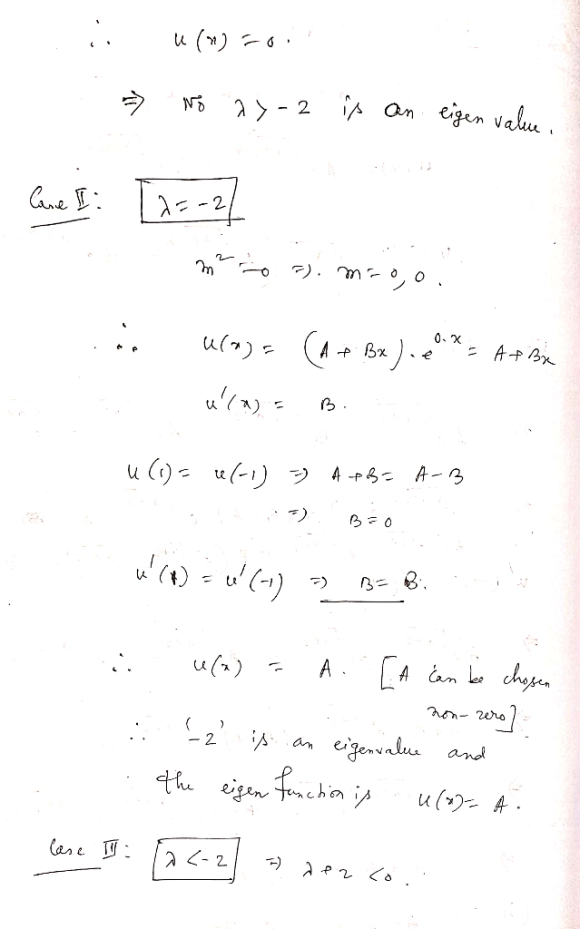 ∴ u(x) = 0.
⇒ No λ > -2 is an eigen value.
Case II: λ = -2
m² = 0 ⇒. m = 0, 0.
∴ u(x) = (A + Bx).e^{0.x} = A + Bx
u'(x) = B.
u(1) = u(-1) ⇒ A + B = A - B
⇒) B = 0
u'(1) = u'(-1) ⇒ B = B.
∴ u(x) = A. [A can be chosen
non-zero]
∴ '-2' is an eigenvalue and
the eigen function is u(x) = A.
Case III: λ < -2 ⇒ λ + 2 < 0.